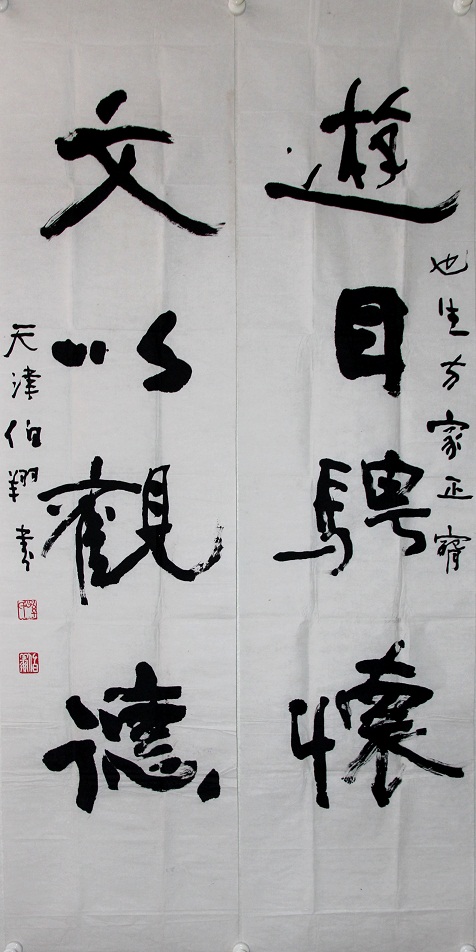 也生方家正腕
遊目騁懷
文以觀德
天津伯翔書